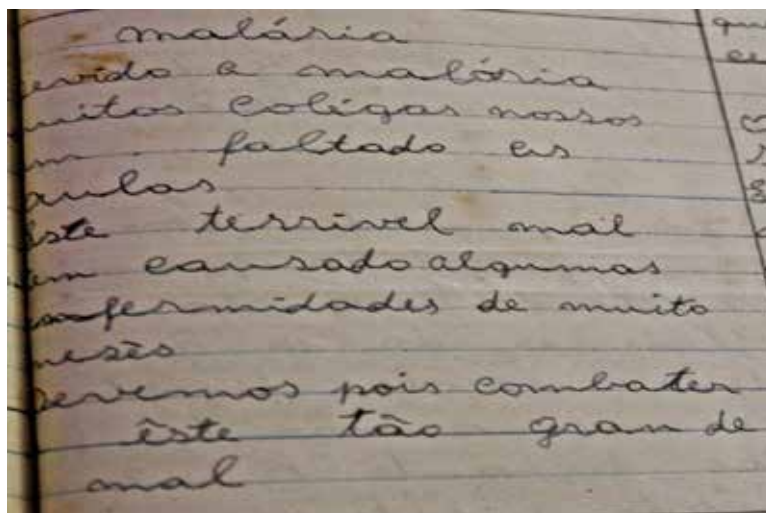 malária
evido a malória
uitos colégas nossos
m faltado as
aulas
ste terrivel mal
em causado algumas
enfermidades de muito
mesês
Devemos pois combater
êste tão grande
mal